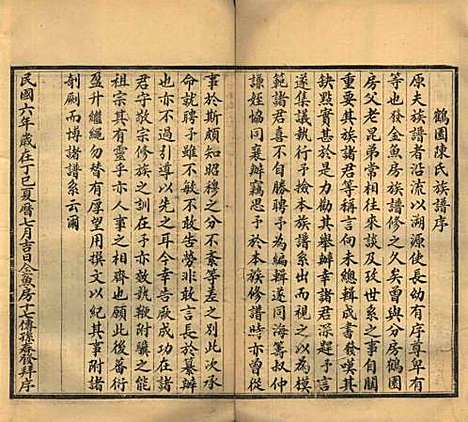 鶴園陳氏族譜序
原夫族譜者沿流以溯源使長幼有序尊卑有
等也發金魚房族譜修之久矣曾與分房鶴園
房父老兄弟常相往來談及攷世系之事自關
缺點實甚於是力勸其舉辦幸諸君深趯予言
責重其族諸君等稱言向未總輯成書發嘆其
無從著手檢予本族譜系出而視之以為模
範諸君喜不自勝聘予為編輯遂同海籌叔仲
謙姪協同襄辦竊思予於本族修譜時亦曾從
事於斯頗知昭穆之分予亦不敢固辭此次承
命就聘予雖不敏不敢告勞非敢言長於纂辦
也亦不過以先 之心為心成功在諸
君守敬宗修族之訓在予亦效執鞭附驥之能
祖宗其有靈乎亦人之相齊也願此後蕃衍
盈升繼繩勿替有厚望焉用撰文以紀其事附諸
剞劂而博諸譜系云爾
民國六年歲在丁巳夏曆七月吉日金魚房十七傳孫 發拜序